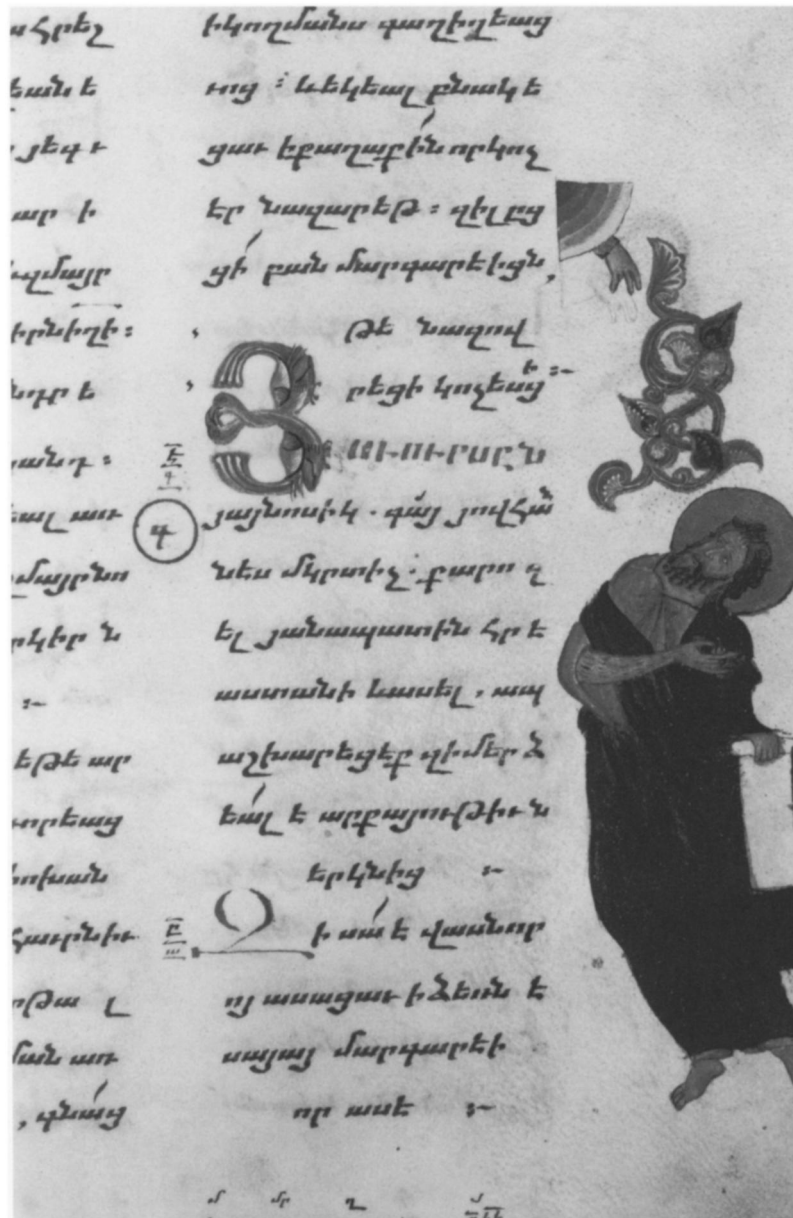 հրեշ
եան ե
յեգ ւ
ար ի
զմայր
անդ :
եալ առ
րկիր ն
:~
եթե ար
որեաց
փոխան
րթա լ
ման առ
, գնաց
իկողմանս գաղիղեաց
ւոց : և եկեալ բնակե
ցաւ իքաղաքին որկոչ
եր նազարեթ : զի լըց
ցի բան մարգարեիցն,
թե նազով
րեցի կոչեսցի :~
ՅԱՒՈՒՐՍԸՆ
գ յայնոսիկ . գայ յովհան
նես մկրտիչ . քարոզ
ել յանապատին հրե
աստանի և ասել . ապ
աշխարեցեք զի մերձ
եալ է արքայութիւն
երկնից :~
Զի սա է վասնոր
ոյ ասացաւ ի ձեռն ե
սայայ մարգարեի
որ ասե :~